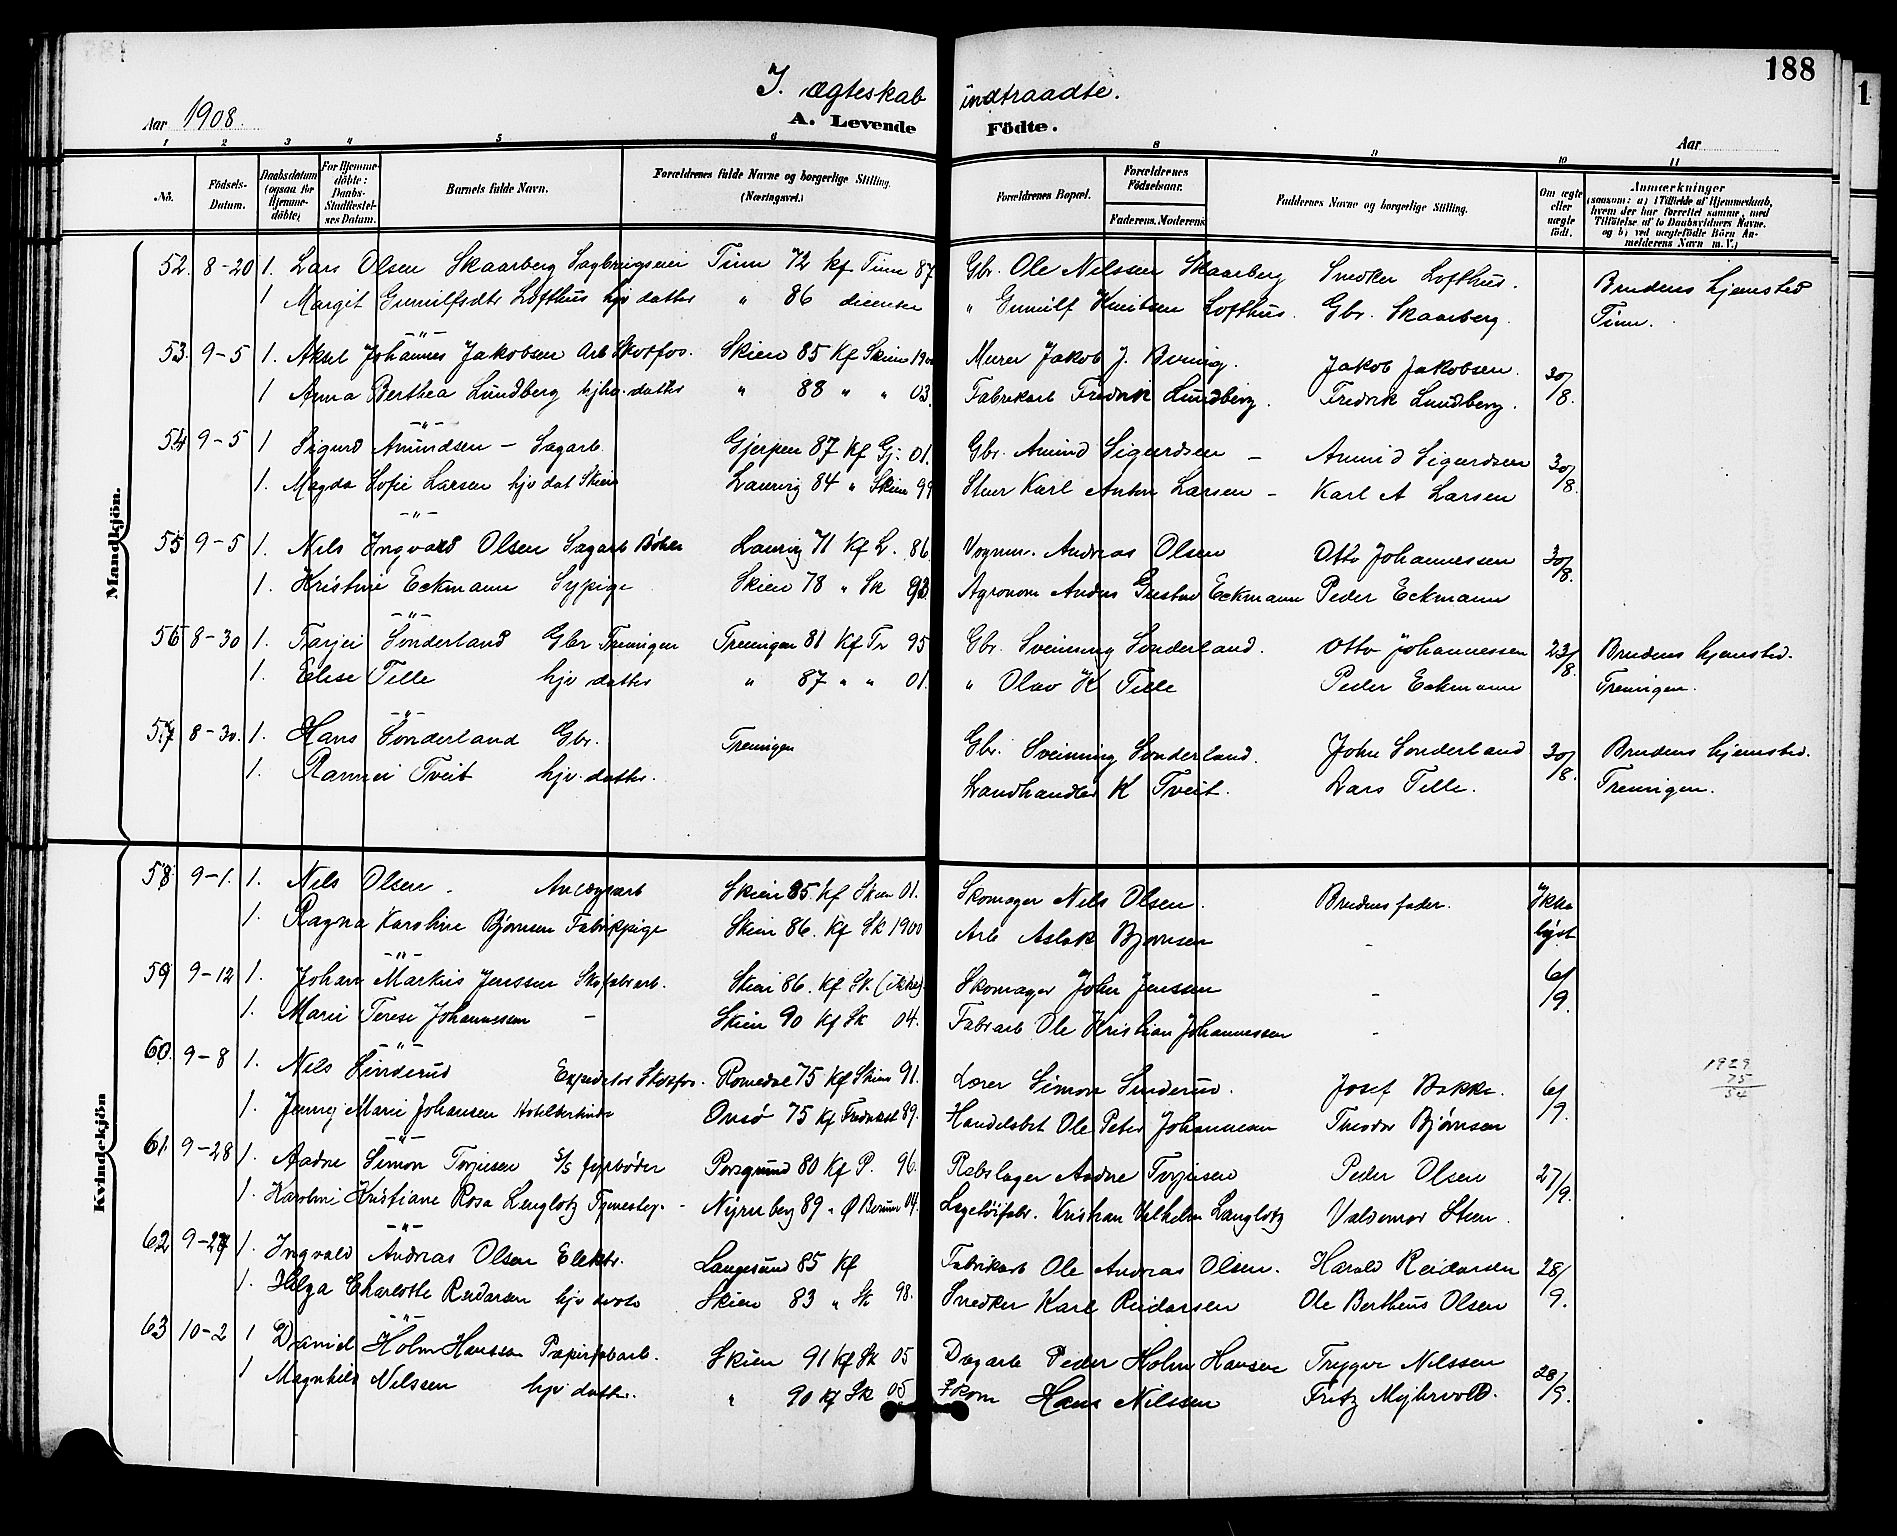 188
I. ægteskab indtraadte.
Aar 1908.
A. Levende Födte.
Aar
1 2 3 4 5 6 8 9 10 11
No. Födsels-Datum. Daabsdatum (ogsaa for Hjemme-döbte) For Hjemme-döbte: Daabs-Stadfæstelses Datum. Barnets fulde Navn. Forældrenes fulde Navne og borgerlige Stilling. (Næringsvei.)
Forældrenes Bopæl. Forældrenes Födselsaar. Faderens. Moderens Faddernes Navne og borgerlige Stilling. Om ægte eller uægte födt. Anmærkninger (saasom: a) i Tilfælde af Hjemmedaab, hvem der har forrettet samme, med Tilföielse af to Daabsvidners Navne. og b) ved uægtefödte Börn Anmelderens Navn m. V.)
Mandkjön.
52. 8-20 1. Lars Olsen Skaarberg Tinn 72 Kf Tinn 87 Gbr. Ole Nilssen Skaarberg Snedker Lofthus. Brudens hjemsted
1 Margit Gunulfsdtr Lofthus hjv datter " 86 " Gunulf Knutsen Lofthus. Gbr. Skaarberg. Tinn.
-"-
53. 9-5 1. Aksel Johannes Jakobsen Arb Skotfos. Skien 85 Kf Skien 1900 Murer Jakob J. Jakob Jakobsen. 30/8.
1 Anna Berthea Lundberg hjv. datter " 88 " " 03. Fabrikarb Fredrik Lundberg. Fredrik Lundberg.
-"-
54 9-5 1 Sigurd Amundsen - Sagarb. Gjerpen 87 Kf Gj. 01. Gbr. Amund Sigurdsen - Amund Sigurdsen 30/8.
1. Magda Sofie Larsen hjv dat Skien Laurvig 84 " Skien 99 Karl Anton Larsen - Karl A Larsen
-"-
55 9-5 1. Nils Ingvald Olsen Sagarb Laurvig 71 Kf L. 86. Vognm. Andreas Olsen Otto Johannessen 30/8.
1. Kristine Eckmann Sypige Skien 78 " Sk 93. Agronom Anders Gustav Eckmann Peder Eckmann
-"-
56 8-30 1. Tarjei Sønderland Gbr Treungen Treungen 81 Kf Tr 95 Gbr. Sveinung Sønderland. Otto Johannessen 23/8. Brudens hjemsted.
1. Elise Telle hjv datter " 87 " " 01. " Olav K Telle Peder Eckmann Treungen.
-"-
57 8-30. 1. Hans Sønderland Gbr. Treungen Gbr. Sveinung Sønderland. John Sønderland 30/8. Brudens hjemsted.
1. Rannei Tveit hjv. datter. Landhandler K Tveit. Lars Telle. Treungen.
Kvindekjön
58 9-1. 1. Nils Olsen. Anlægsarb Skien 85. Kf Skien 01. Skomager Nils Olsen. Brudens fader. Ikke
1. Ragna Karoline Bjørnsen Fabrikpige Skien 86. Kf Sk 1900 Arb Aslak Bjørnsen - lyst
-"-
59 9-12 1. Johan Markus Jenssen Skofabrarb. Skien 86. Kf Sk. (ikke). Skomager John Jenssen - 6/9.
1. Marie Terese Johannessen - Skien 90 Kf Sk 04. Fabrarb Ole Kristian Johannessen -
-"-
60. 9-8 1. Nils Sinderud Expeditør Skotfos. Romedal 75 Kf Skien 91. Lærer Simon Sinderud. Josef Bakke. 6/9. 1929
75
54
1. Jenny Marie Johansen Hotelbestinde Onsø 75 Kf Fredrikstd 89. Handelsbet Ole Peter Johannesen Theodor Bjørnsen
-"-
61. 9-28 1. Aadne Simon Torjusen S/S fyrbøder Porsgrund 80 Kf P. 96. Rebslager Aadne Torjusen Peder Olsen 27/9.
1. Karoline Kristiane Rosa Langlotz Tjenestep. - Nyrnberg 89 " 04. Legetøifabr. Kristian Vilhelm Langlotz Valdemar Steen.
-"-
62 9-27 1. Ingvald Andreas Olsen Elektr. Langesund 85 Kf Fabrikarb Ole Andreas Olsen. Harald Reidarsen 28/9.
1. Helga Charlotte Reidarsen hjv datter Skien 83 " Sk 98. Snedker Karl Reidarsen Ole Bertheus Olsen
-"-
63 10-2 1 Daniel Holm Hansen Papirfabarb. Skien 91 Kf Sk 05 Dagarb Peder Holm Hansen Trygve Nilssen 28/9.
1 Magnhild Nilssen hjv datter. " 90 Kf Sk 05 Skom Hans Nilssen Fritz Myhrvold.